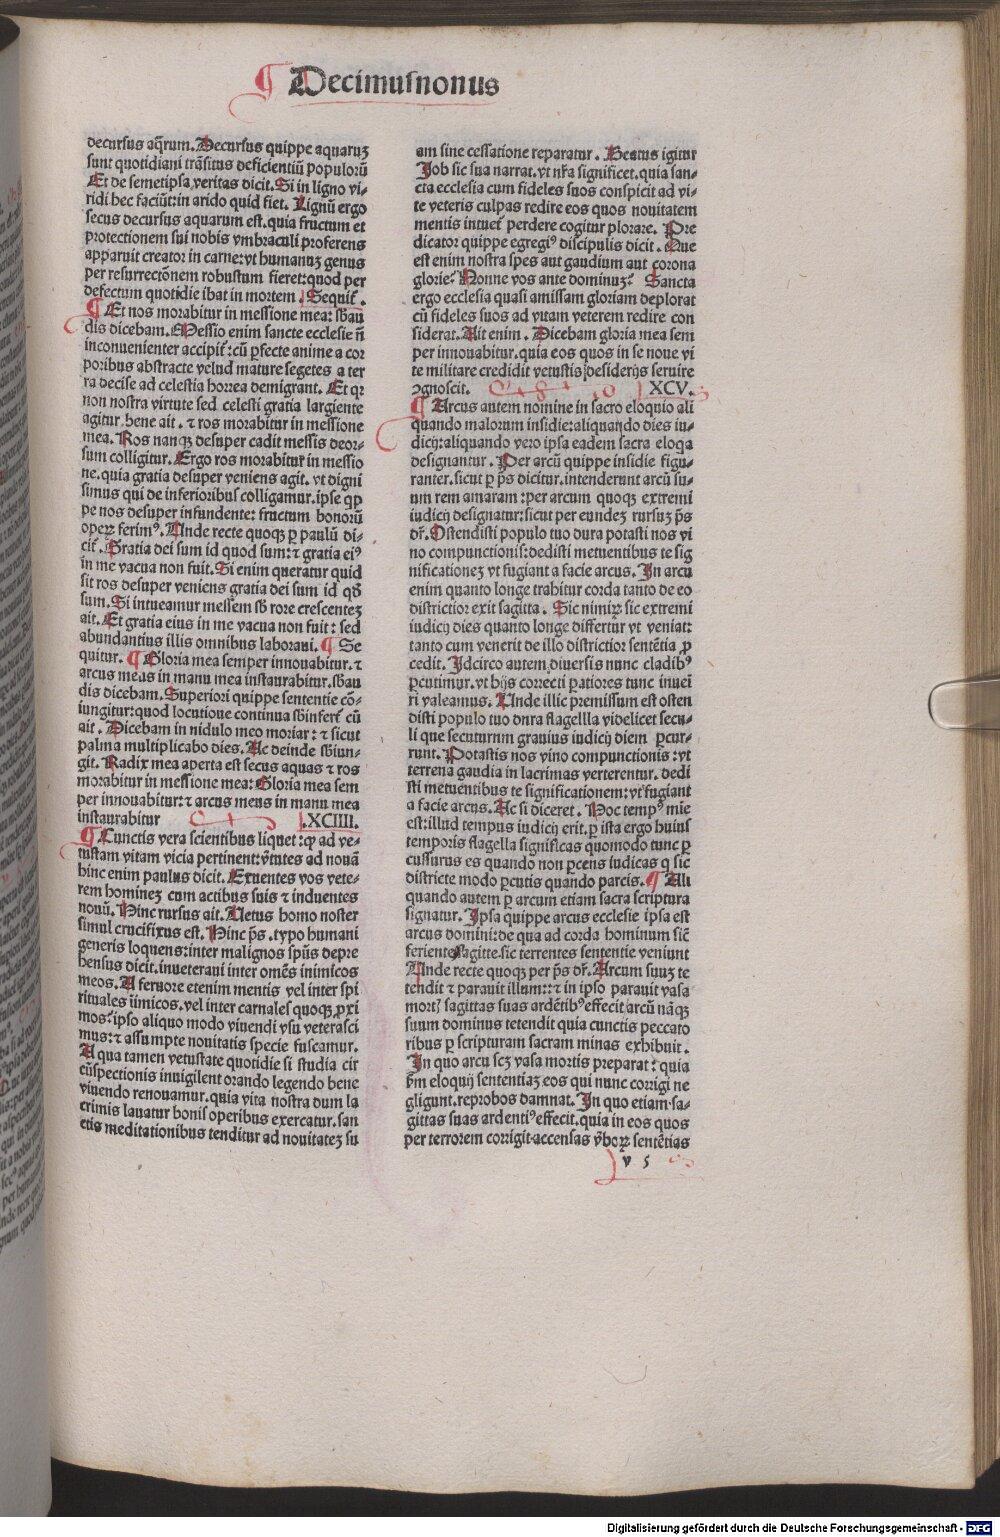 ¶ Decimusnonus
decursus aq̄rum. Decursus quippe aquaruꝫ
sunt quotidiani trāsitus deficientiū populorū
Et de semetipsa veritas dicit. Si in ligno vi⸗
ridi hec faciūt: in arido quid fiet. Lignū ergo
secus decursus aquarum est. quia fructum et
protectionem sui nobis vmbraculi proferens
apparuit creator in carne: vt humanuꝫ genus
per resurrectōnem robustum fieret: quod per
defectum quotidie ibat in mortem. Sequit᷑.
¶ Et ros morabitur in messione mea: sb̄au
dis dicebam. Messio enim sancte ecclesie n̄
inconuenienter accipit᷑: cū ꝑfecte anime a cor
poribus abstracte velud mature segetes a ter
ra decise ad celestia horrea demigrant. Et qꝛ
non nostra virtute sed celesti gratia largiente
agitur. bene ait. ⁊ ros morabitur in messione
mea. Ros nanqꝫ desuper cadit messis deor⸗
sum colligitur. Ergo ros morabitur in messio
ne. quia gratia desuper veniens agit. vt digni
simus qui de inferioribus colligamur. ipse qꝓ
pe nos desuper infundente: fructum bonorū
operꝝ ferimꝰ. Unde recte quoqꝫ ꝑ paulū di⸗
cit᷑. Gratia dei sum id quod sum: ⁊ gratia eiꝰ
in me vacua non fuit. Si enim queratur quid
sit ros desuper veniens gratia dei sum id qd̄
sum. Si intueamur messem sb̄ rore crescenteꝫ
ait. Et gratia eius in me vacua non fuit: sed
abundantius illis omnibus laboraui. ¶ Se
quitur. ¶ Gloria mea semper innouabitur. ⁊
arcus meus in manu mea instaurabitur. sb̄au
dis dicebam. Superiori quippe sententie cō⸗
iungitur: quod locutione continua sb̄infert᷑ cū
ait. Dicebam in nidulo meo moriar: ⁊ sicut
palma multiplicabo dies. Ac deinde sb̄iun⸗
git. Radix mea aperta est secus aquas ⁊ ros
morabitur in messione mea: Gloria mea sem
per innouabitur: ⁊ arcus meus in manu mea
instaurabitur .XCIIII.
¶ Cunctis vera scientibus liquet: ꝙ ad ve⸗
tustam vitam vicia pertinent: v̄tutes ad nouā
hinc enim paulus dicit. Exuentes vos vete⸗
rem homineꝫ cum actibus suis ⁊ induentes
nouū. Hinc rursus ait. Uetus homo noster
simul crucifixus est. Hinc p̄s. typo humani
generis loquens: inter malignos spūs depre
hensus dicit. inueteraui inter omēs inimicos
meos. A feruore etenim mentis vel inter spi
rituales īimicos. vel inter carnales quoqꝫ ꝓxi
mos: ipso aliquo modo viuendi vsu veterasci
mus: ⁊ assumpte nouitatis specie fuscamur.
A qua tamen vetustate quotidie si studia cir
cūspectionis inuigilent orando legendo bene
viuendo renouamur. quia vita nostra dum la
crimis lauatur bonis operibus exercatur. san
ctis meditationibus tenditur ad nouitateꝫ su
am sine cessatione reparatur. Beatus igitur
Job sic sua narrat. vt nr̄a significet. quia san⸗
cta ecclesia cum fideles suos conspicit ad vi⸗
te veteris culpas redire eos quos nouitatem
mentis intuet᷑ perdere cogitur plorare. Pre
dicator quippe egregiꝰ discipulis dicit. Que
est enim nostra spes aut gaudium aut corona
glorie? Nonne vos ante dominuꝫ? Sancta
ergo ecclesia quasi amissam gloriam deplorat
cū fideles suos ad vitam veterem redire con
siderat. Ait enim. Dicebam gloria mea sem
per innouabitur. quia eos quos in se noue vi
te militare credidit vetustis desiderijs seruire
ꝯgnoscit. XCV.
¶ Arcus autem nomine in sacro eloquio ali
quando malorum insidie: aliquando dies iu⸗
dicij: aliquando vero ipsa eadem sacra eloqa
designantur. Per arcū quippe insidie figu⸗
rantur. sicut ꝑ p̄s dicitur. intenderunt arcū su⸗
um rem amaram: per arcum quoqꝫ extremi
iudicij designatur: sicut per eundeꝫ rursuꝫ p̄s
dr̄. Ostendisti populo tuo dura potasti nos vi
no compunctionis: dedisti metuentibus te sig
nificationeꝫ vt fugiant a facie arcus. In arcu
enim quanto longe trahitur corda tanto de eo
districtior exit sagitta. Sic nimiꝝ sic extremi
iudicij dies quanto longe differtur vt veniat:
tanto cum venerit de illo districtior sentētia ꝓ
cedit. Idcirco autem diuersis nunc cladibꝰ
ꝑcutimur. vt hijs correcti ꝑatiores tunc inueī
ri valeamus. Unde illic premissum est osten
disti populo tuo dura flagella videlicet secu⸗
li que secuturum grauius iudicij diem ꝑcur⸗
runt. Potastis nos vino compunctionis: vt
terrena gaudia in lacrimas verterentur. dedi
sti metuentibus te significationem: vt fugiant
a facie arcus. Ac si diceret. Hoc tempꝰ mie
est: illud tempus iudicij erit. ꝑ ista ergo huius
temporis flagella significas quomodo tunc ꝑ
cussurus es quando non ꝑcens iudicas q̄ sic
districte modo ꝑcutis quando parcis. ¶ Ali
quando autem ꝑ arcum etiam sacra scriptura
signatur. Ipsa quippe arcus ecclesie ipsa est
arcus domini: de qua ad corda hominum sic̄
feriente sagitte. sic terrentes sententie veniunt
Unde recte quoqꝫ per p̄s dr̄. Arcum suuꝫ te
tendit ⁊ parauit illum: ⁊ in ipso parauit vasa
mort᷑ sagittas suas ardētibꝰ effecit. arcū nāqꝫ
suum dominus tetendit quia cunctis peccato
ribus ꝑ scripturam sacram minas exhibuit.
In quo arcu scꝫ vasa mortis preparat: quia
b̄m eloquij sententiaꝫ eos qui nunc corrigi ne
gligunt. reprobos damnat. In quo etiam sa⸗
gittas suas ardentiꝰ effecit. quia in eos quos
per terrorem corrigit. accensas v̄borꝝ sentētias
v 5
Digitalisierung gefördert durch die Deutsche Forschungsgemeinschaft - DFG